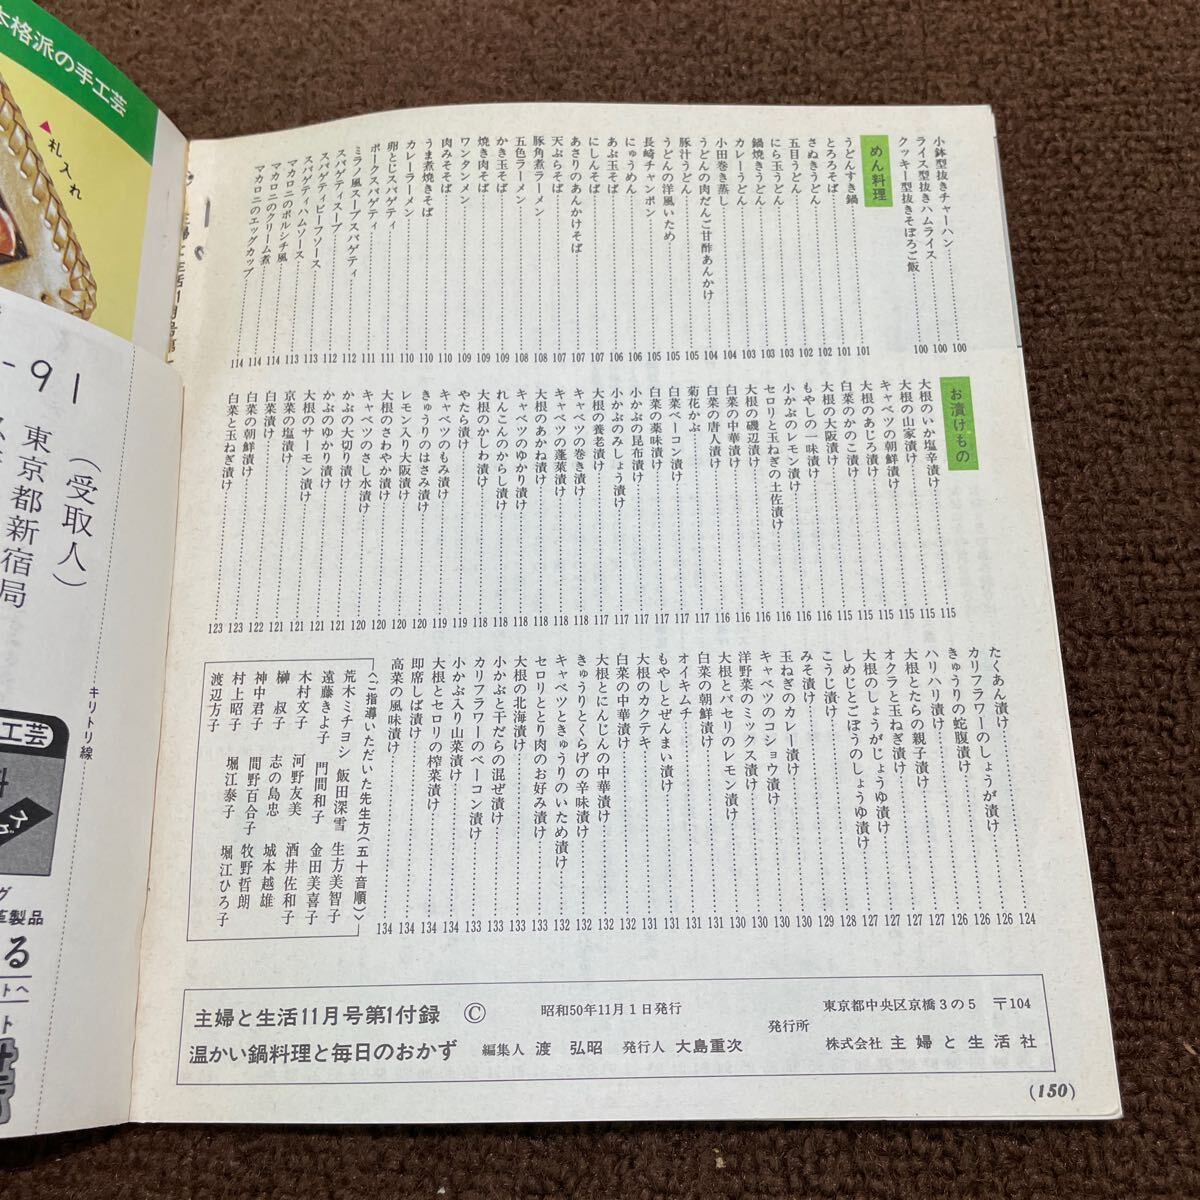 本格派の手工芸
▲札入れ
-91
(受取人)
東京都新宿局
キリトリ線
小鉢型抜きチャーハン……100
ライス型抜きハムライス……100
クッキー型抜きそぼろご飯……100
めん料理
うどんすき鍋……101
とろろそば……101
さぬきうどん……102
五目うどん……102
にら玉うどん……103
鍋焼きうどん……103
カレーうどん……103
小田巻き蒸し……104
うどんの肉だんご甘酢あんかけ……104
豚汁うどん……105
うどんの洋風いため……105
長崎チャンポン……105
にゅうめん……106
あぶ玉そば……106
にしんそば……107
あさりのあんかけそば……107
天ぷらそば……107
豚角煮ラーメン……108
五色ラーメン……108
かき玉そば……108
焼き肉そば……109
ワンタンメン……109
肉みそそば……109
うま煮焼きそば……110
カレーラーメン……110
卵とじスパゲティ……111
ポークスパゲティ……111
ミラノ風スープスパゲティ……112
スパゲティスープ……112
スパゲティビーフソース……113
スパゲティハムソース……113
マカロニのボルシチ風……114
マカロニのクリーム煮……114
マカロニのエッグカップ……114
お漬けもの
大根のいか塩辛漬け……115
大根の山家漬け……115
キャベツの朝鮮漬け……115
大根のあじろ漬け……115
白菜のかのこ漬け……115
大根の大阪漬け……116
もやしの一味漬け……116
小かぶのレモン漬け……116
セロリと玉ねぎの土佐漬け……116
大根の磯辺漬け……116
白菜の中華漬け……116
白菜の唐人漬け……116
菊花かぶ……117
白菜ベーコン漬け……117
白菜の薬味漬け……117
小かぶの昆布漬け……117
小かぶのみしょう漬け……117
大根の養老漬け……117
キャベツの巻き漬け……117
キャベツの蓬莱漬け……118
大根のあかね漬け……118
キャベツのゆかり漬け……118
れんこんのからし漬け……118
大根のかしわ漬け……118
やたら漬け……119
キャベツのもみ漬け……119
きゅうりのはさみ漬け……120
レモン入り大阪漬け……120
大根のさわやか漬け……120
キャベツのさし水漬け……121
かぶの大切り漬け……121
かぶのゆかり漬け……121
大根のサーモン漬け……121
京菜の塩漬け……122
白菜漬け……123
白菜の朝鮮漬け……123
白菜と玉ねぎ漬け
たくあん漬け……124
カリフラワーのしょうが漬け……126
きゅうりの蛇腹漬け……126
ハリハリ漬け……126
大根とたらの親子漬け……127
オクラと玉ねぎ漬け……127
大根のしょうがじょうゆ漬け……127
しめじとごぼうのしょうゆ漬け……127
こうじ漬け……128
みそ漬け……129
玉ねぎのカレー漬け……130
キャベツのコショウ漬け……130
洋野菜のミックス漬け……130
大根とパセリのレモン漬け……130
白菜の朝鮮漬け……131
オイキムチ……131
もやしとぜんまい漬け……131
大根のカクテキ……131
白菜の中華漬け……132
大根とにんじんの中華漬け……132
きゅうりとくらげの辛味漬け……132
キャベツときゅうりのいため漬け……132
セロリととり肉のお好み漬け……133
大根の北海漬け……133
小かぶと干だらの混ぜ漬け……133
カリフラワーのベーコン漬け……133
小かぶ入り山菜漬け……134
大根とセロリの榨菜漬け……134
即席しば漬け……134
高菜の風味漬け……134
〈ご指導いただいた先生方(五十音順)〉
荒木ミチヨシ 飯田深雪 生方美智子
遠藤きよ子 門間和子 金田美喜子
木村文子 河野友美 酒井佐和子
榊叔子 志の島忠 城本越雄
神中君子 間野百合子 牧野哲朗
村上昭子 堀江泰子 堀江ひろ子
渡辺方子
主婦と生活11月号第1付録 ©
温かい鍋料理と毎日のおかず
昭和50年11月1日発行
編集人 渡 弘昭 発行人 大島重次
発行所
東京都中央区京橋3の5 〒104
株式会社 主婦と生活社
(150)